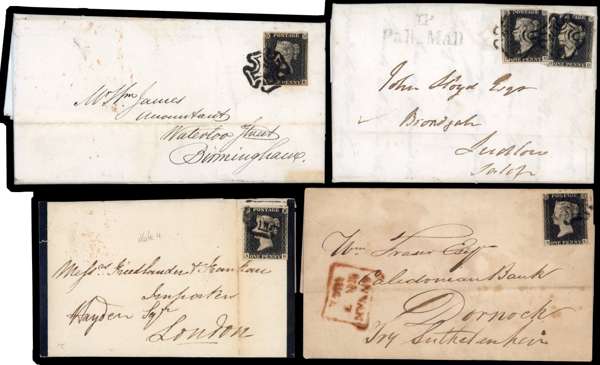 POSTAGE
ONE PENNY
Mr Wm James
Accountant
Waterloo Street
Birmingham
T.P
Pall Mall
POSTAGE
ONE PENNY
POSTAGE
ONE PENNY
John Lloyd Esqr
Broadgate
Ludlow
Salop
POSTAGE
ONE PENNY
Note 4
Messrs Friedlander &
Importers
Hayden Sqre
London
POSTAGE
ONE PENNY
Wm Fraser Esqr
Caledonian Bank
Dornock
By Sutherland